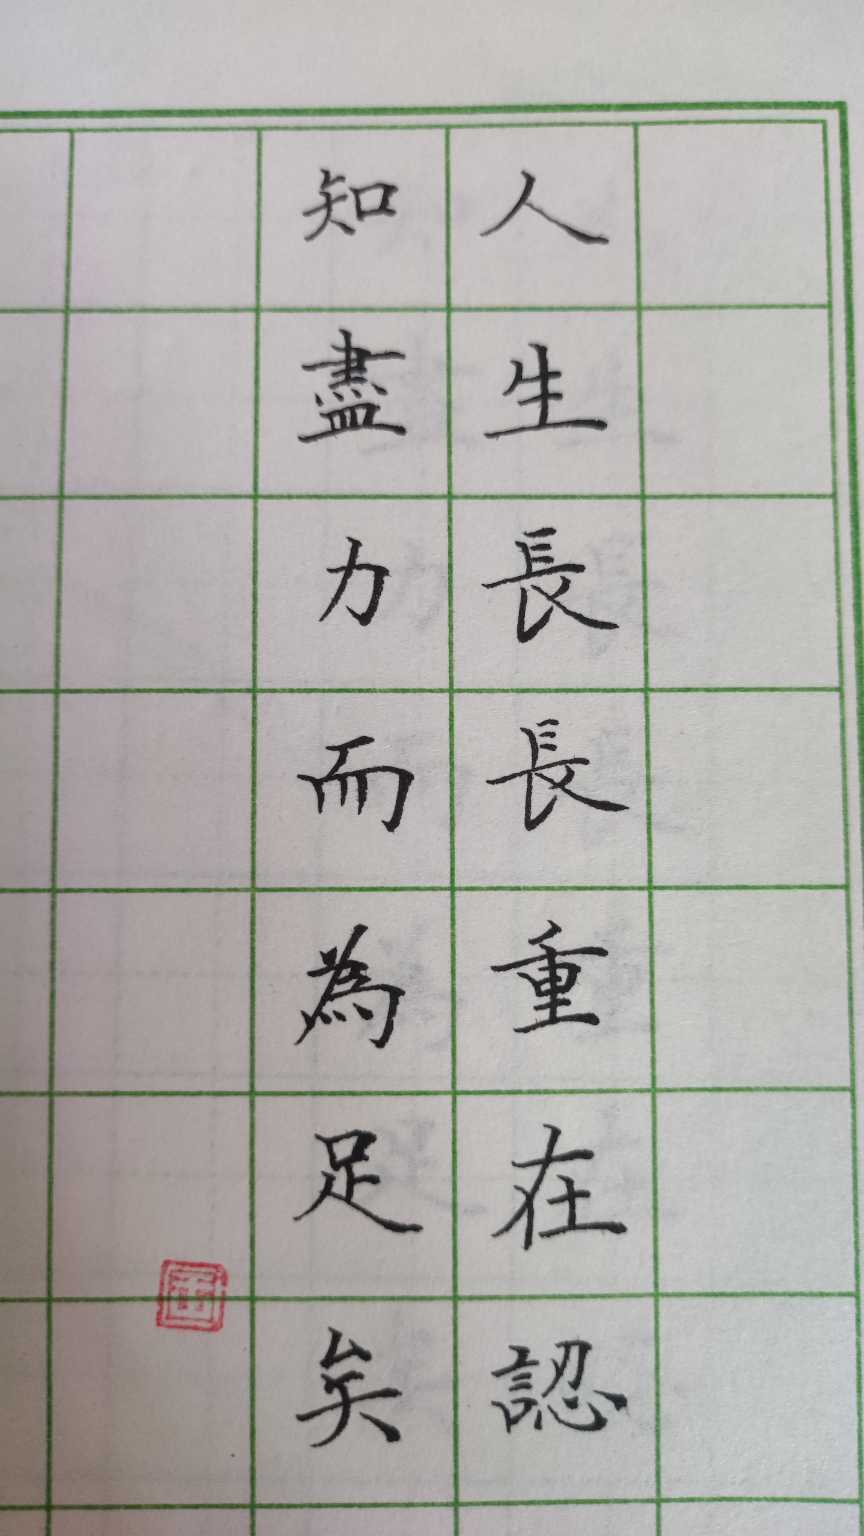 人生長長重在認
知盡力而為足矣